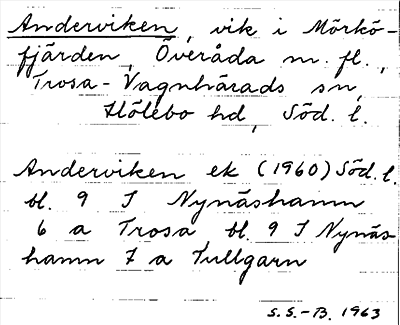 Anderviken, vik i Mörkö-
fjärden, Överåda m. fl.,
Trosa-Vagnhärads sn,
Hölebo hd, Söd. l.
Anderviken ek (1960) Söd. l.
bl. 9 I Nynäshamn
6 a Trosa bl. 9 I Nynäs
hamn 7 a Tullgarn
S.S.-B. 1963